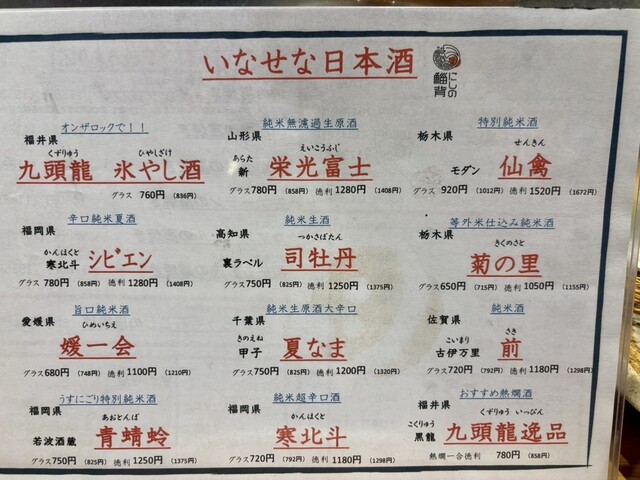 いなせな日本酒
にしの
鯔背
オンザロックで！！
福井県
くずりゅう ひやしざけ
九頭龍 氷やし酒
グラス 760円 (836円)
純米無濾過生原酒
山形県
えいこうふじ
あらた
新 栄光富士
グラス780円 (858円) 徳利1280円 (1408円)
特別純米酒
栃木県
せんきん
モダン 仙禽
グラス 920円 (1012円) 徳利1520円 (1672円)
辛口純米夏酒
福岡県
かんほくと
寒北斗 シビエン
グラス 780円 (858円) 徳利1280円 (1408円)
純米生酒
高知県
つかさぼたん
裏ラベル 司牡丹
グラス750円 (825円) 徳利1250円 (1375円)
等外米仕込み純米酒
栃木県
きくのさと
菊の里
グラス650円 (715円) 徳利1050円 (1155円)
旨口純米酒
愛媛県
ひめいちえ
媛一会
グラス680円 (748円) 徳利1100円 (1210円)
純米生原酒大辛口
千葉県
きのえね
甲子 夏なま
グラス750円 (825円) 徳利1200円 (1320円)
純米酒
佐賀県
さき
こいまり
古伊万里 前
グラス720円 (792円) 徳利1180円 (1298円)
うすにごり特別純米酒
福岡県
あおとんぼ
若波酒蔵 青蜻蛉
グラス750円 (825円) 徳利1250円 (1375円)
純米超辛口酒
福岡県
かんほくと
寒北斗
グラス720円 (792円) 徳利1180円 (1298円)
おすすめ熱燗酒
福井県
くずりゅう いっぴん
こくりゅう
黒龍 九頭龍逸品
熱燗一合徳利 780円 (858円)